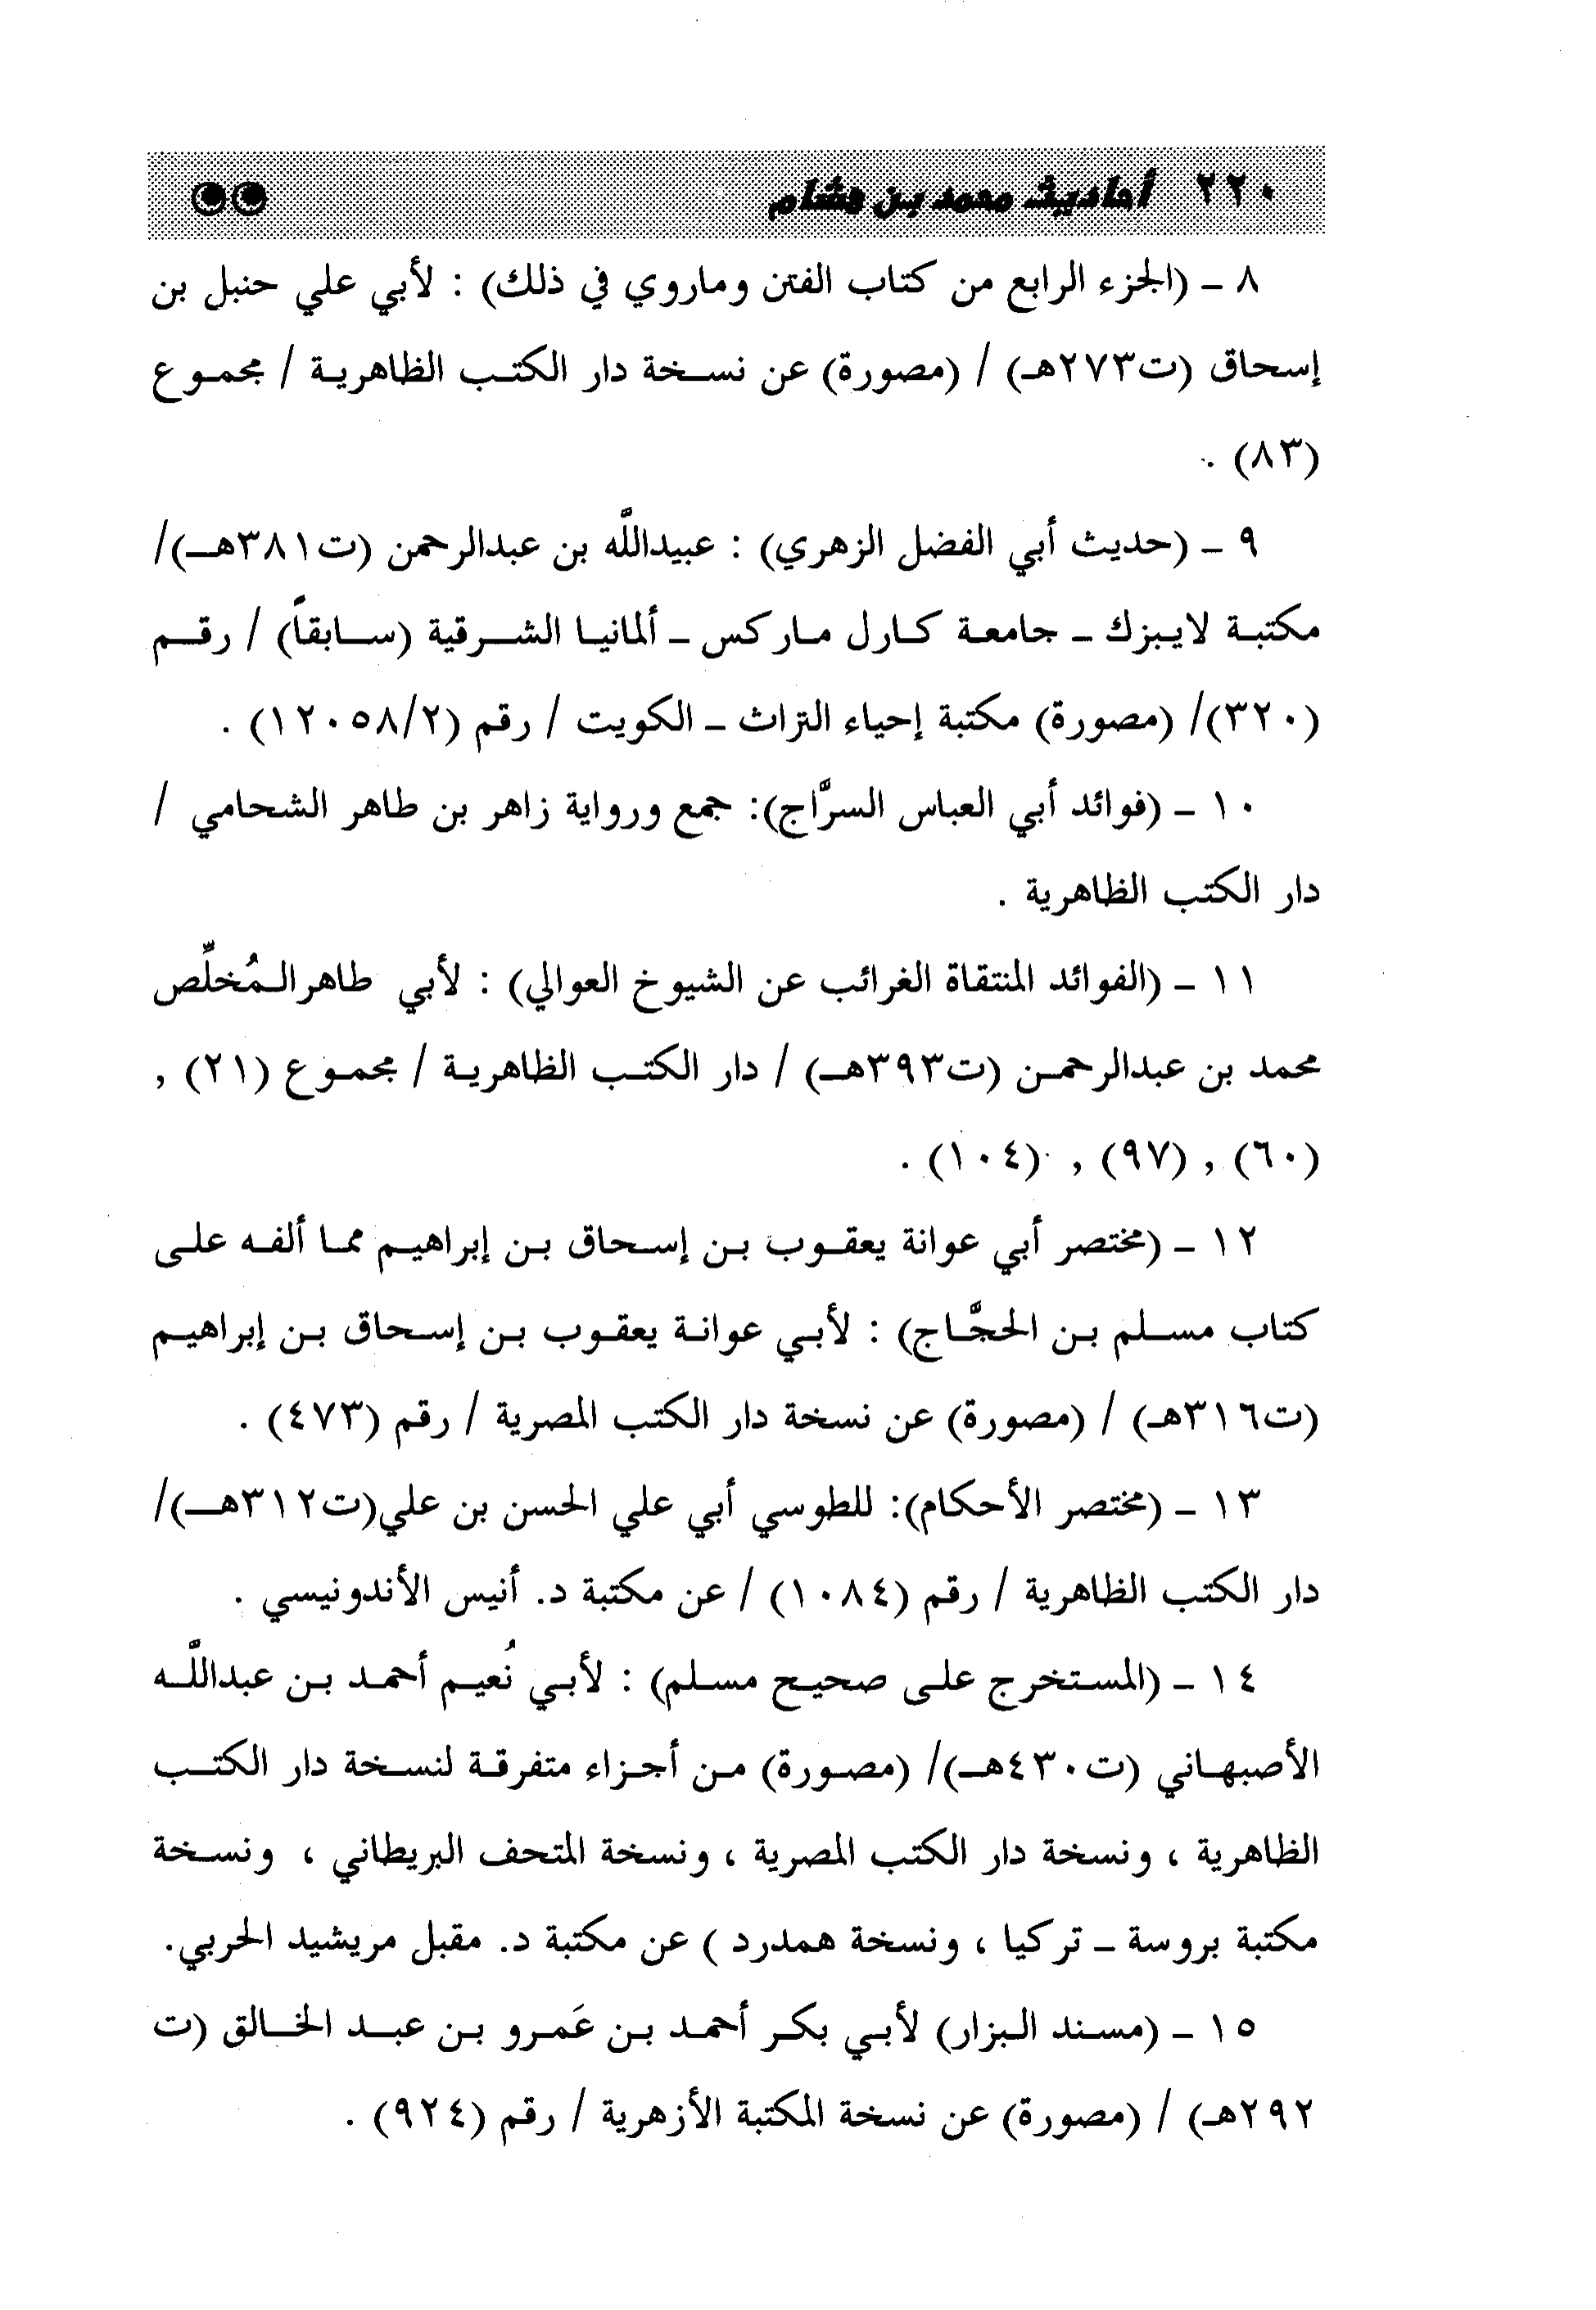 ٢٢٠ أحاديث محمد بن هشام
٨ – (الجزء الرابع من كتاب الفتن وماروي في ذلك) : لأبي علي حنبل بن
إسحاق (ت٢٧٣هـ) / (مصورة) عن نسخة دار الكتب الظاهرية / مجموع
(٨٣) .
٩ – (حديث أبي الفضل الزهري) : عبيداللَّه بن عبدالرحمن (ت٣٨١هـ)/
مكتبة لايبزك – جامعة كارل ماركس – ألمانيا الشرقية (سابقاً) / رقم
(٣٢٠)/ (مصورة) مكتبة إحياء التراث – الكويت / رقم (١٢٠٥٨/٢) .
١٠ – (فوائد أبي العباس السرَّاج): جمع ورواية زاهر بن طاهر الشحامي /
دار الكتب الظاهرية .
١١ – (الفوائد المنتقاة الغرائب عن الشيوخ العوالي) : لأبي طاهرالـمُخلِّص
محمد بن عبدالرحمن (ت٣٩٣هـ) / دار الكتب الظاهرية / مجموع (٢١) ,
(٦٠) , (٩٧) , (١٠٤) .
١٢ – (مختصر أبي عوانة يعقوب بن إسحاق بن إبراهيم مما ألفه على
كتاب مسلم بن الحجَّاج) : لأبي عوانة يعقوب بن إسحاق بن إبراهيم
(ت٣١٦هـ) / (مصورة) عن نسخة دار الكتب المصرية / رقم (٤٧٣) .
١٣ – (مختصر الأحكام): للطوسي أبي علي الحسن بن علي(ت٣١٢هـ)/
دار الكتب الظاهرية / رقم (١٠٨٤) / عن مكتبة د. أنيس الأندونيسي .
١٤ – (المستخرج على صحيح مسلم) : لأبي نُعيم أحمد بن عبداللَّه
الأصبهاني (ت٤٣٠هـ)/ (مصورة) من أجزاء متفرقة لنسخة دار الكتب
الظاهرية ، ونسخة دار الكتب المصرية ، ونسخة المتحف البريطاني ، ونسخة
مكتبة بروسة – تركيا ، ونسخة همدرد ) عن مكتبة د. مقبل مريشيد الحربي.
١٥ – (مسند البزار) لأبي بكر أحمد بن عَمرو بن عبد الخالق (ت
٢٩٢هـ) / (مصورة) عن نسخة المكتبة الأزهرية / رقم (٩٢٤) .